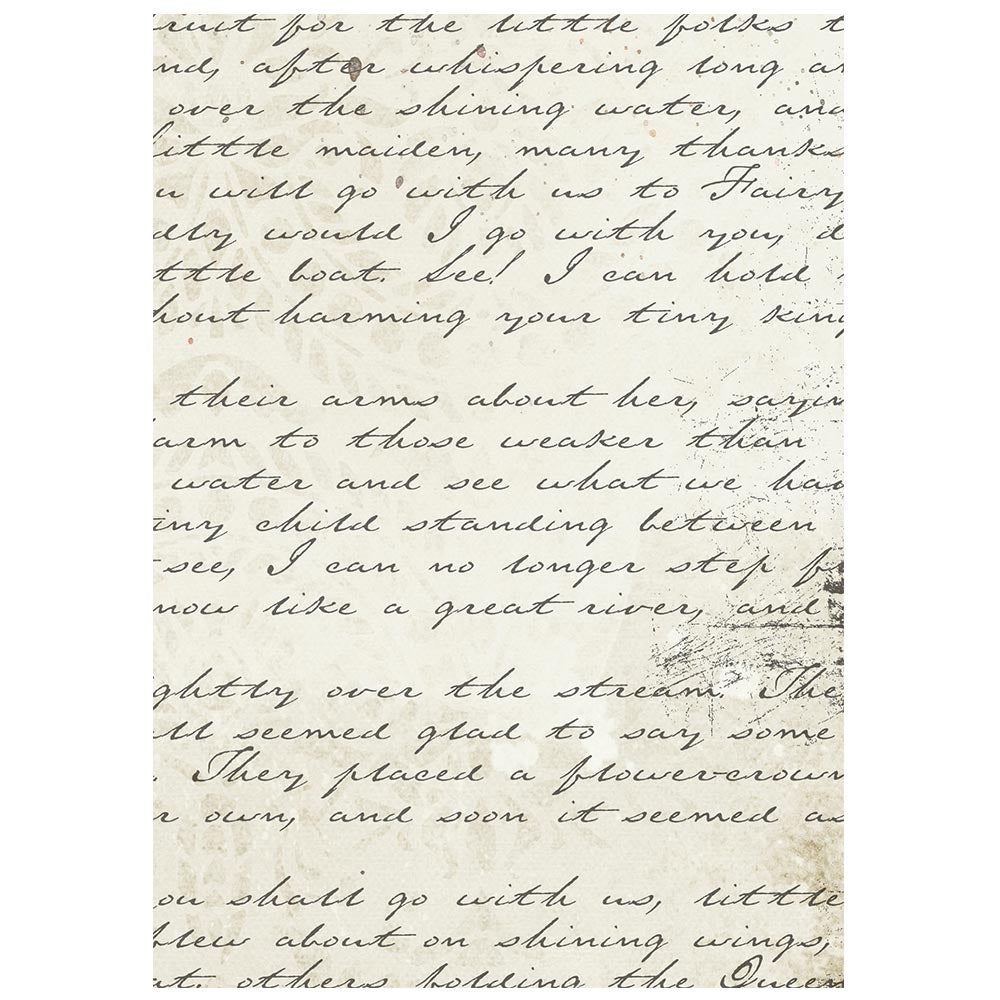 ruit for the little folks t
nd, after whispering long a
over the shining water, and
little maiden, many thanks
u will go with us to Fairy
dly would I go with you, d
ttle boat. See! I can hold
hout harming your tiny king
their arms about her, sayin
arm to those weaker than
water and see what we ha
iny child standing between
see, I can no longer step f
now like a great river, and
ghtly over the stream. The
ll seemed glad to say some
. They placed a flower-crown
r own, and soon it seemed as
ou shall go with us, little
flew about on shining wings,
at, others holding the Queen